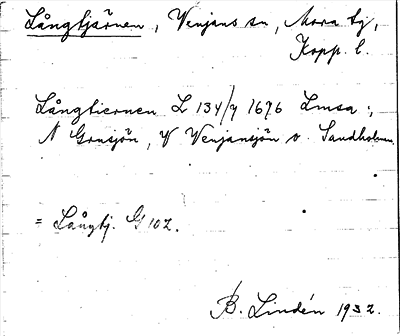 Långtjärnen, Venjans sn, Mora tg,
Kopp. l.
Långtiernen L 134/9 1696 Lmsa:,
N Gransjön, V Venjansjön o. Sandholmen.
= Långtj. G 102.
B. Lindén 1932.